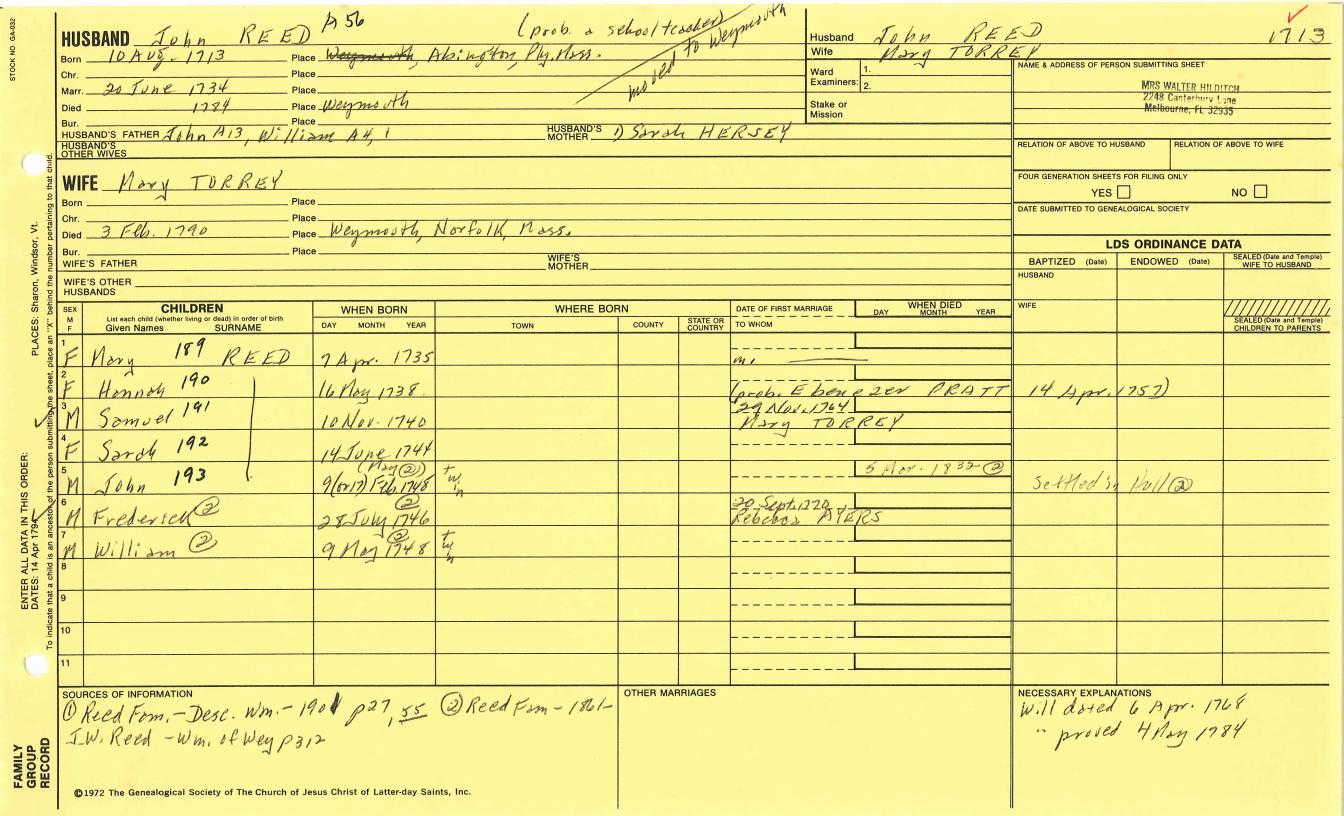 STOCK NO. GA-032
HUSBAND John REED A56 (prob. a school teacher)
Born 10 Aug. 1713 Place Weymouth, Abington, Ply. Mass. moved to Weymouth
Chr. Place
Marr. 20 June 1734 Place
Died 1784 Place Weymouth
Bur. Place
HUSBAND'S FATHER John A13, William A4, 1 HUSBAND'S MOTHER 1) Sarah HERSEY
HUSBAND'S OTHER WIVES
Husband John REED 1713
Wife Mary TORREY
Ward Examiners: 1. 2.
Stake or Mission
NAME & ADDRESS OF PERSON SUBMITTING SHEET
MRS WALTER HILDITCH
2248 Canterbury Lane
Melbourne, FL 32935
RELATION OF ABOVE TO HUSBAND RELATION OF ABOVE TO WIFE
FOUR GENERATION SHEETS FOR FILING ONLY
YES NO
DATE SUBMITTED TO GENEALOGICAL SOCIETY
WIFE Mary TORREY
Born Place
Chr. Place
Died 3 Feb. 1790 Place Weymouth, Norfolk, Mass.
Bur. Place
WIFE'S FATHER WIFE'S MOTHER
WIFE'S OTHER HUSBANDS
LDS ORDINANCE DATA
BAPTIZED (Date) ENDOWED (Date) SEALED (Date and Temple) WIFE TO HUSBAND
HUSBAND
WIFE
SEALED (Date and Temple) CHILDREN TO PARENTS
SEX M F CHILDREN WHEN BORN WHERE BORN DATE OF FIRST MARRIAGE WHEN DIED
List each child (whether living or dead) in order of birth
Given Names SURNAME DAY MONTH YEAR TOWN COUNTY STATE OR COUNTRY TO WHOM DAY MONTH YEAR
1 F Mary 189 REED 7 Apr. 1735 m.
2 F Hannah 190 16 May 1738 (prob. Ebenezer PRATT 14 Apr. 1757)
3 M Samuel 191 10 Nov. 1740 29 Nov. 1764 Mary TORREY
4 F Sarah 192 14 June 1744
5 M John 193 (May ②) 9 (or 17) Feb. 1748 twn 5 Mar. 1832 ② settled in Hull ②
6 M Frederick ② 28 July 1746 ② 20 Sept. 1770 Rebecca AYERS
7 M William ② 9 May 1748 ② twn
8
9
10
11
SOURCES OF INFORMATION
① Reed Fam. - Desc. Wm. - 1901 p27, 55 ② Reed Fam - 1861 -
J.W. Reed - Wm. of Wey p312
OTHER MARRIAGES
NECESSARY EXPLANATIONS
Will dated 6 Apr. 1768
" proved 4 May 1784
©1972 The Genealogical Society of The Church of Jesus Christ of Latter-day Saints, Inc.
ENTER ALL DATA IN THIS ORDER:
DATES: 14 Apr 1794
PLACES: Sharon, Windsor, Vt.
To indicate that a child is an ancestor of the person submitting the sheet, place an "X" behind the number pertaining to that child.
FAMILY GROUP RECORD